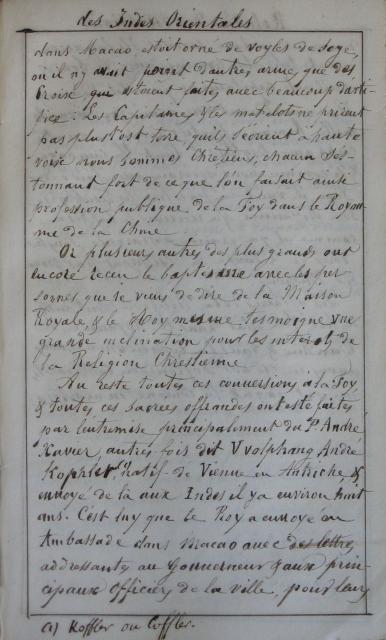 des Indes Orientales
dans Macao estoit orné de voyles de soye,
où il n'y avoit point d'autres armes que des
Croix, qui estoient faites avec beaucoup d'arti-
fice: Les Capitaines & les matelots ne prirent
pas plustost terre qu'ils s'ecrient à haute
voix nous sommes Chrétiens, chacun s'es-
tonnant fort de ce que l'on faisait ainsi
profession publique de la Foy dans le Royau-
me de la Chine
Or plusieurs autres des plus grands ont
encore receu le baptesme avec les per
sonnes que je viens de dire de la Maison
Royale, & le Roy mesme tesmoigne une
grande inclination pour les interets de
la Religion Chrestienne
Au reste toutes ces conversions à la Foy
& toutes ces sacrées offrandes ont esté faites
par l'entremise principalement du P. André
Xavier, autres fois dit Wolphang André
Kophler, natif de Vienne en Autriche, &
envoyé de là aux Indes il y a environ huit
ans. C'est luy que le Roy a envoyé en
Ambassade dans Macao avec des lettres
addressantes au Gouverneur & aux prin-
cipaux Officiers de la ville, pour leur
a) Koffler ou Coffler.